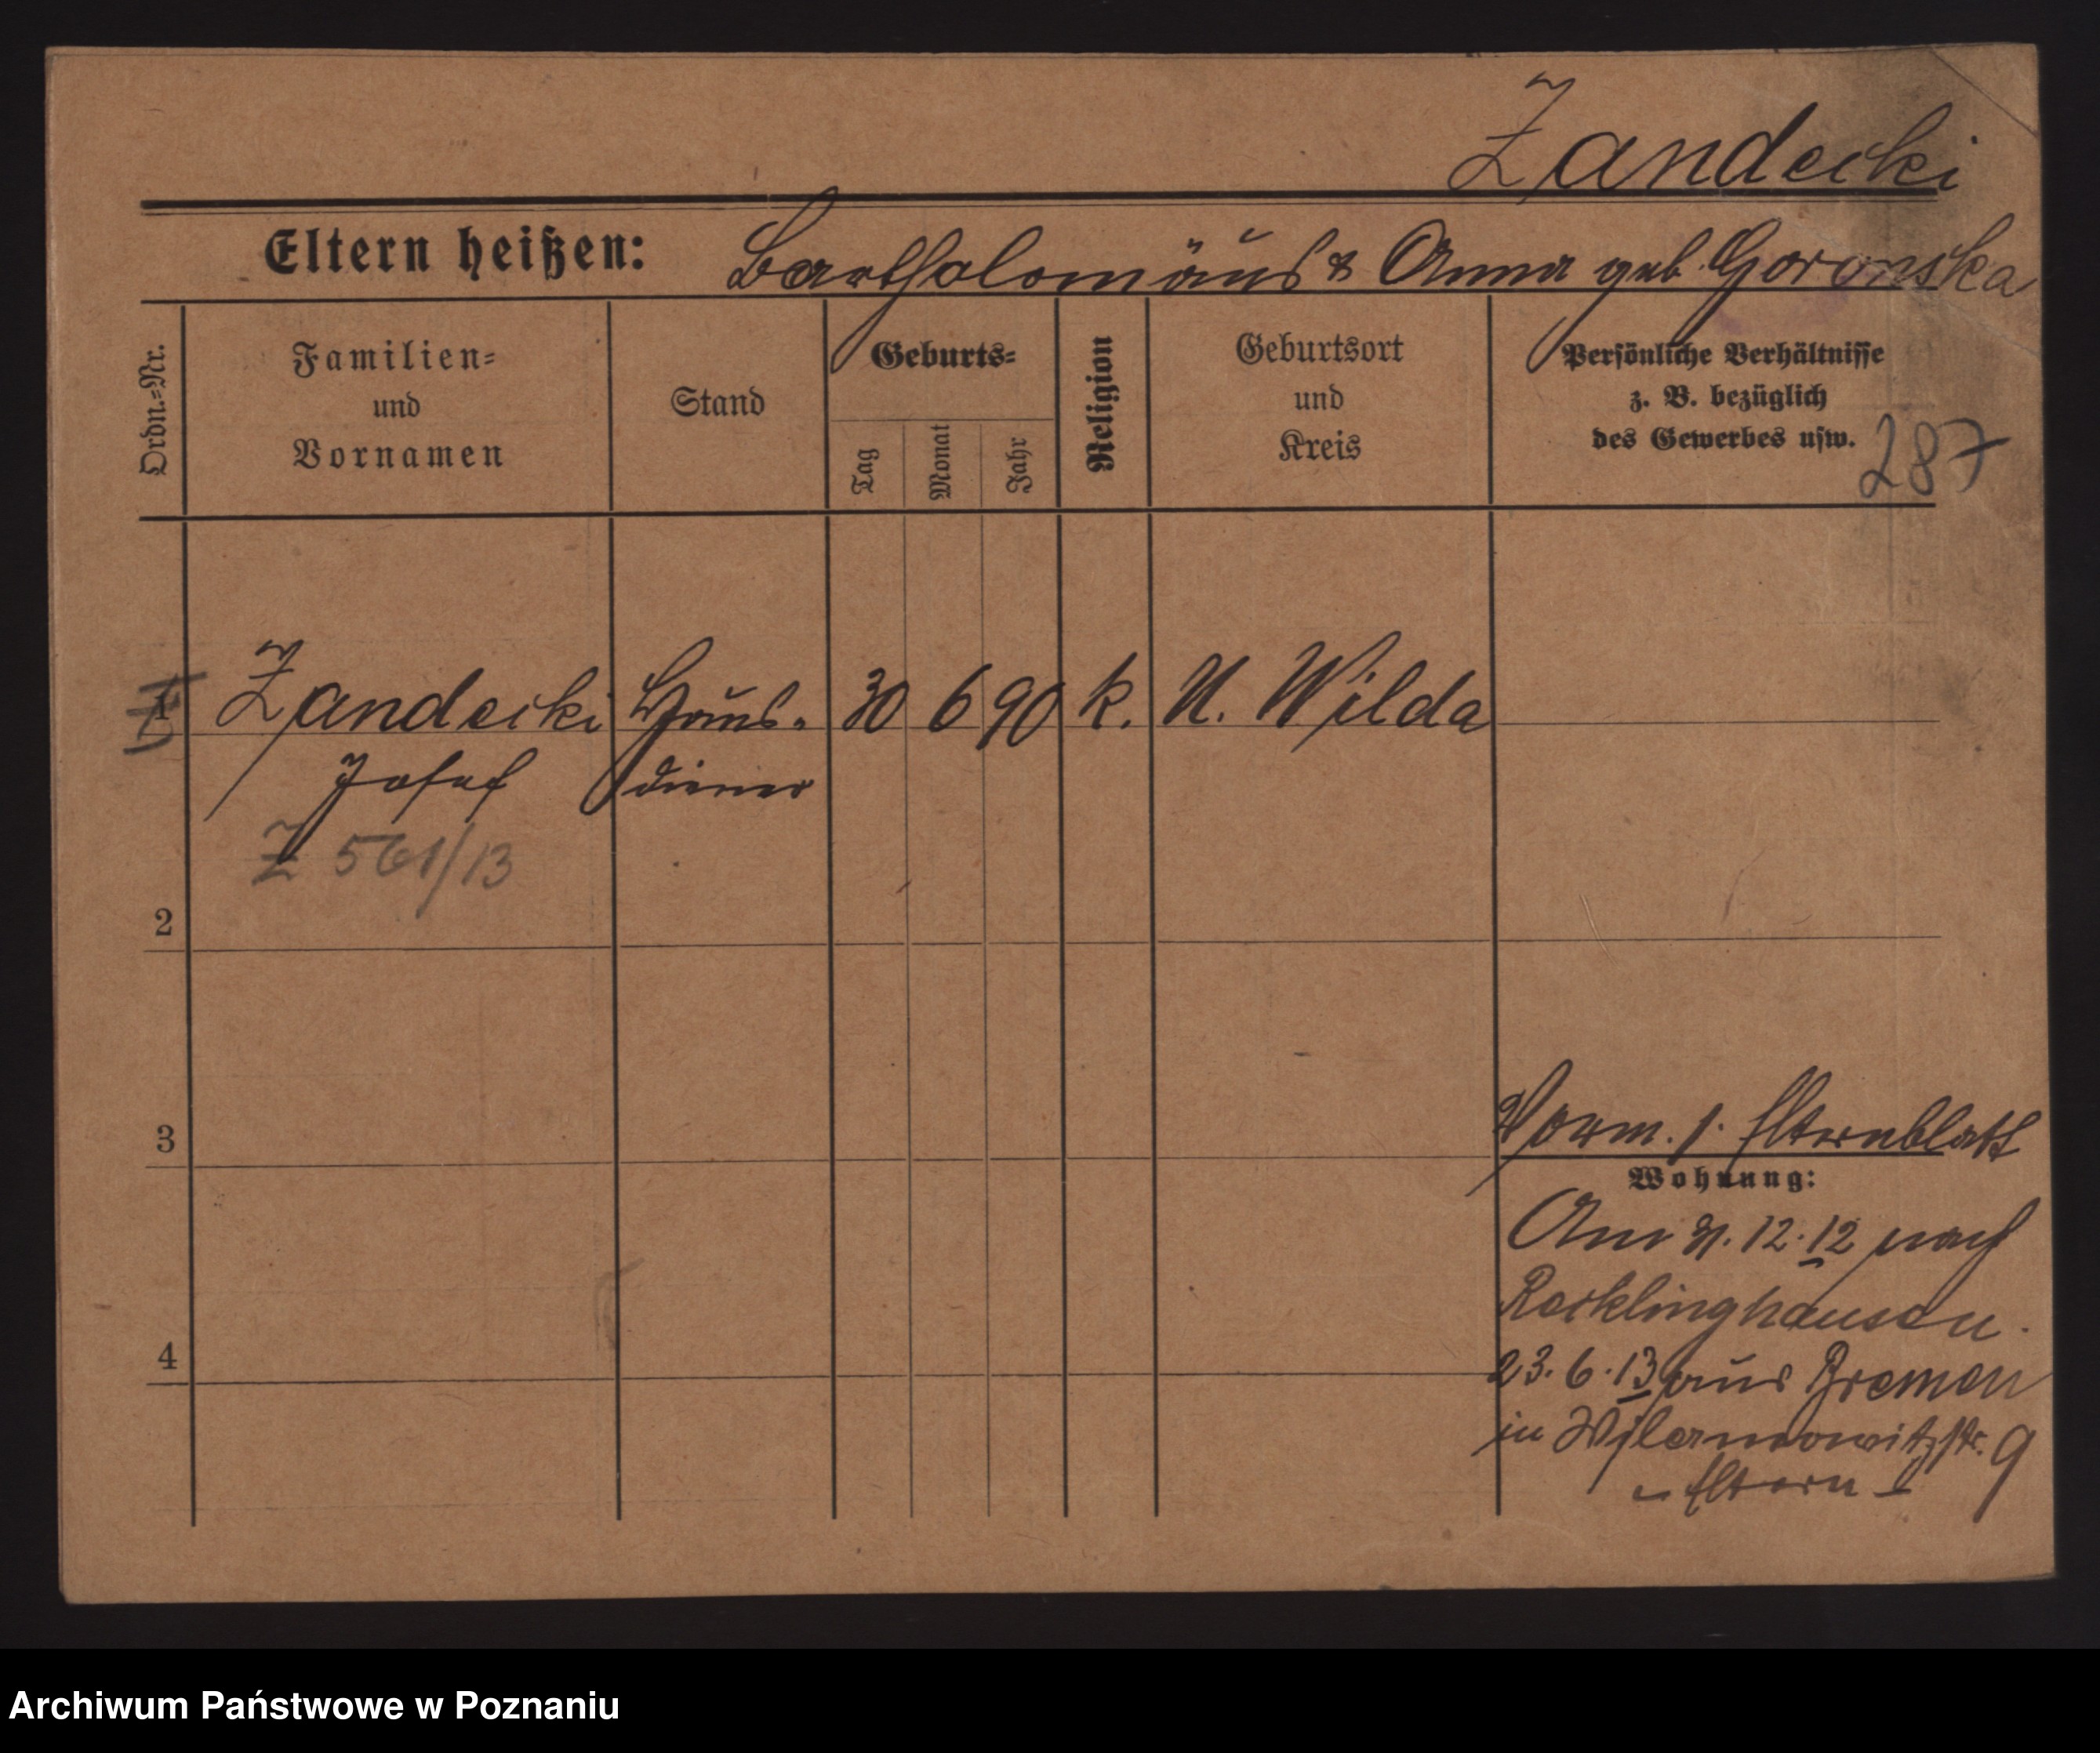 Zandecki
Eltern heißen: Bartholomäus & Anna geb. Goronska
Ordn.=Nr.
Familien= und Vornamen
Stand
Geburts=
Tag
Monat
Jahr
Religion
Geburtsort und Kreis
Persönliche Verhältnisse
z. B. bezüglich
des Gewerbes usw.
287
1 Zandecki Haus- 30 6 90 k. U. Wilda
Josef diener
Z 561/13
2
3
4
Vorm. s. Elternblatt
Wohnung:
Am 12.12 nach
Recklinghausen.
23.6.13 aus Bremen
in 9
Eltern
Archiwum Państwowe w Poznaniu